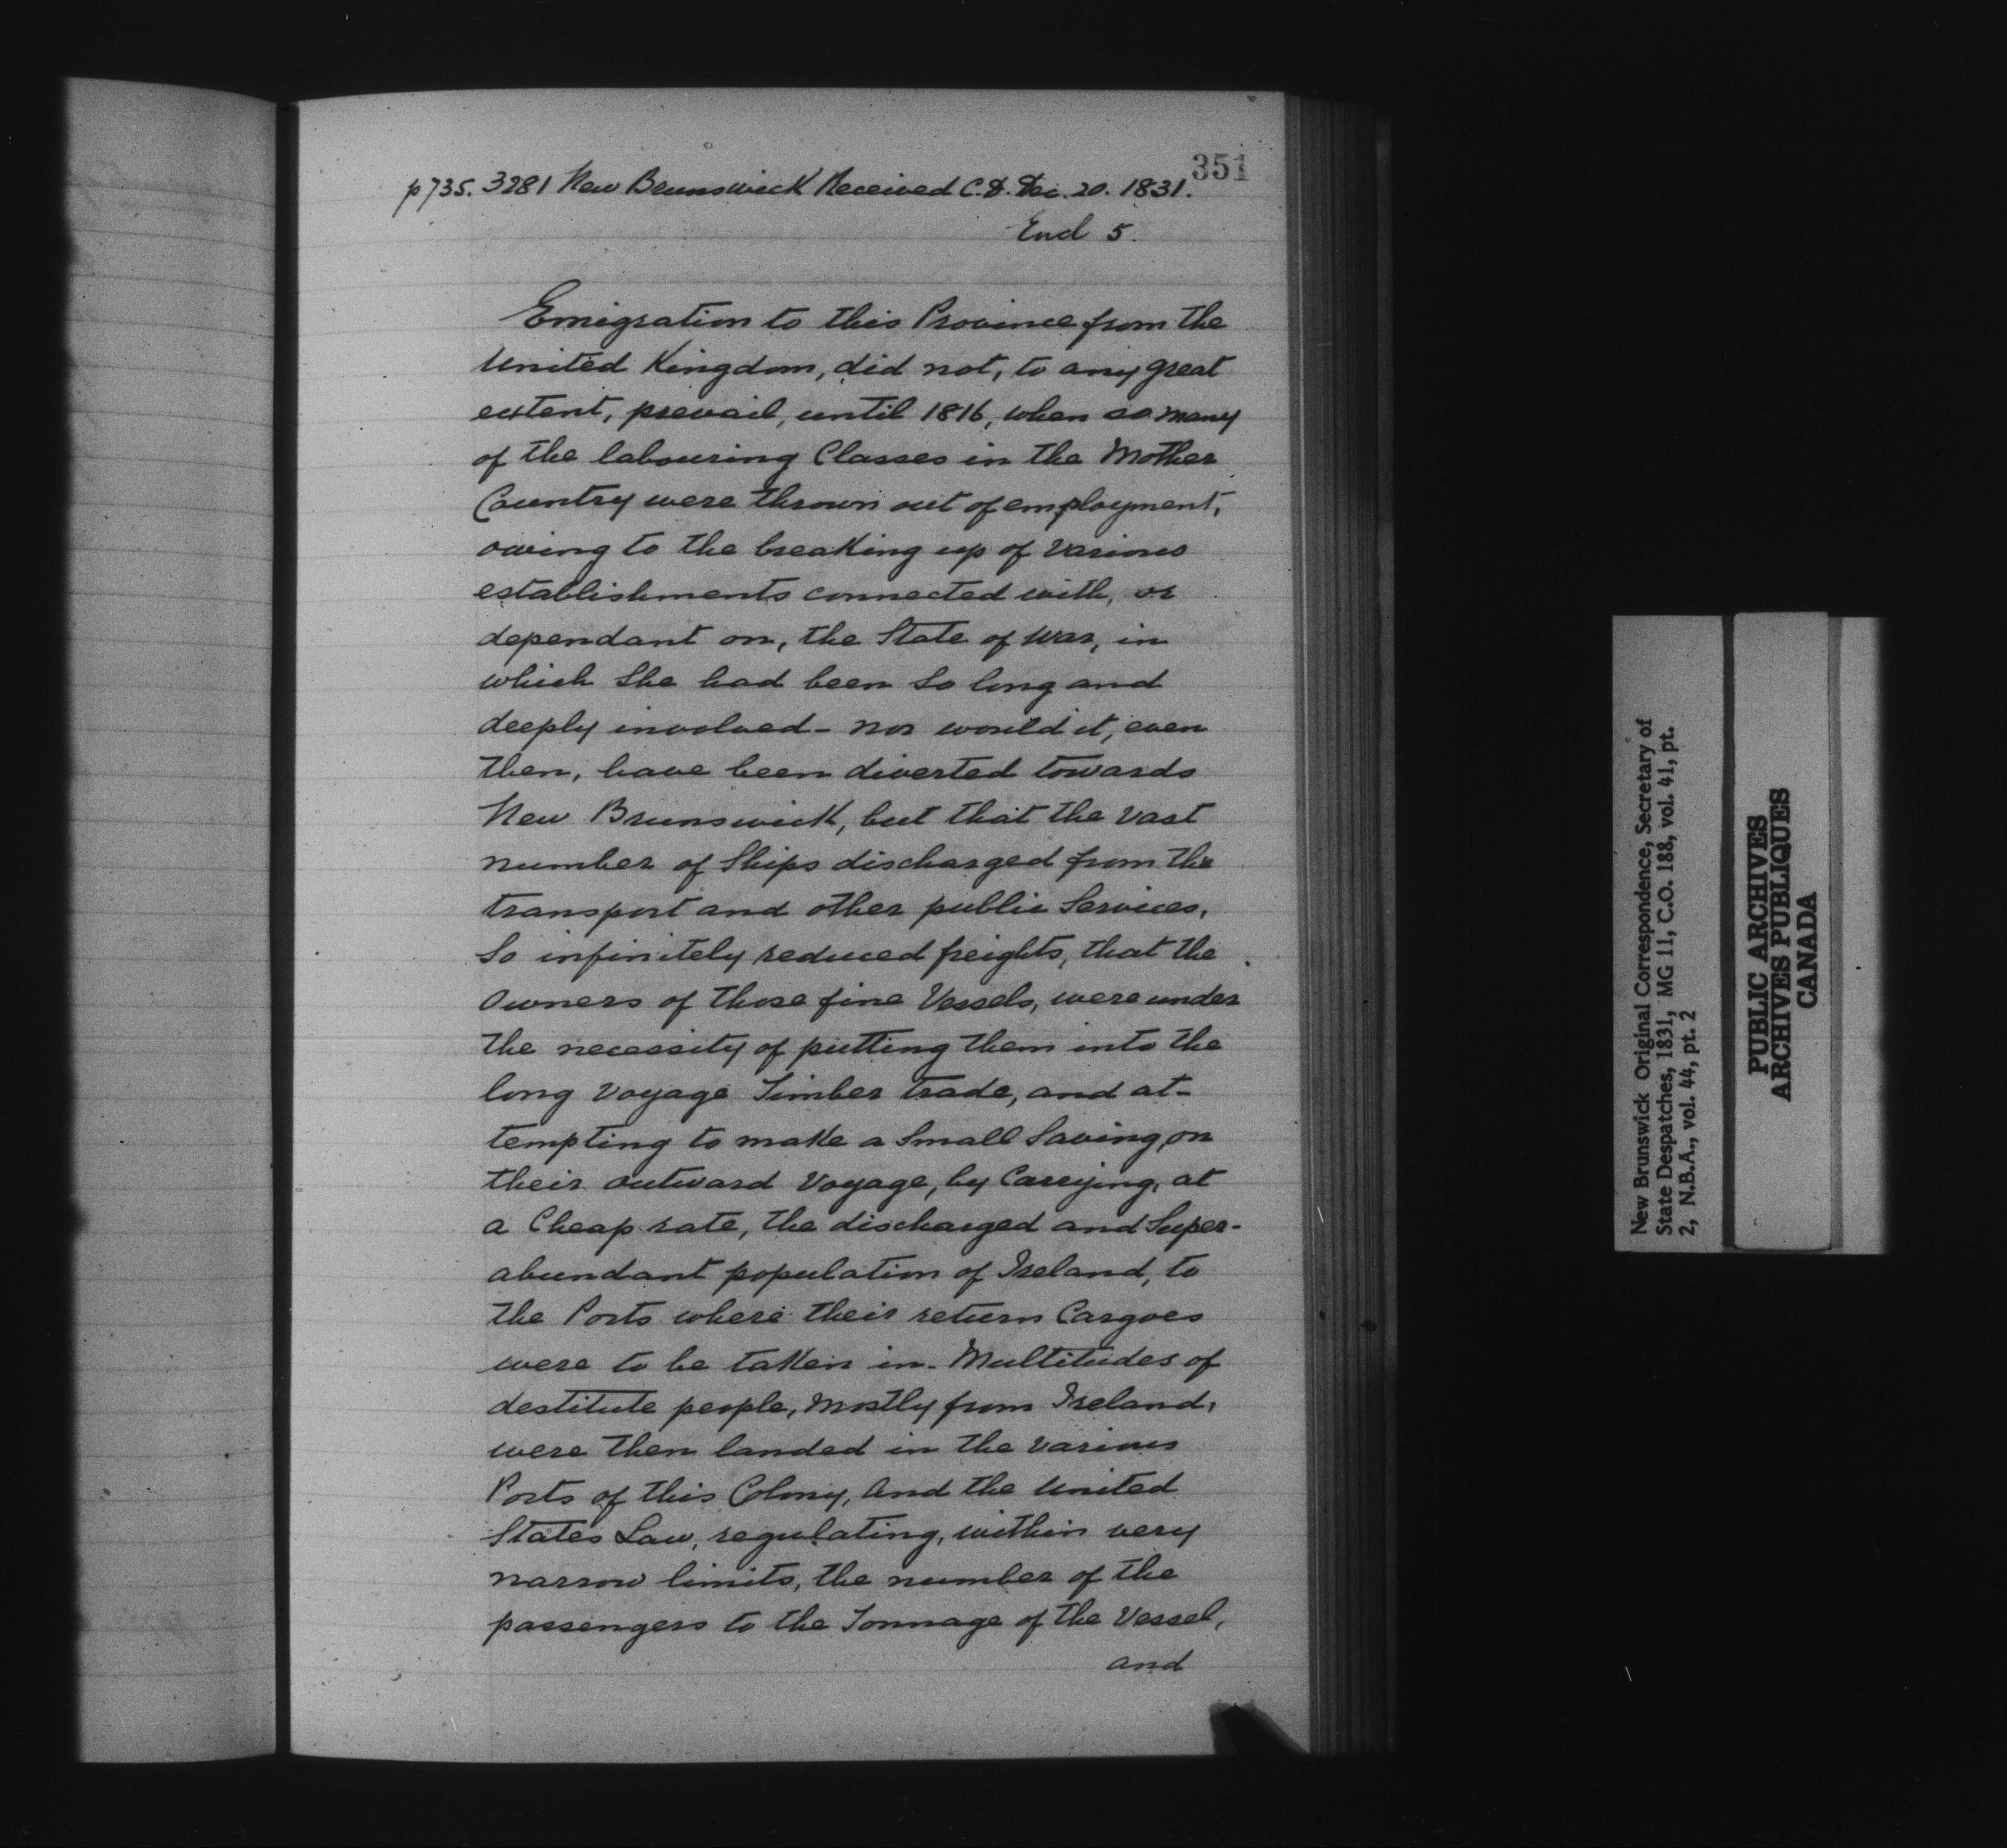 351
p735. 3281 New Brunswick Received C.D. Dec. 20. 1831.
Encl 5.
Emigration to this Province from the
United Kingdom, did not, to any great
extent, prevail, until 1816, when so many
of the labouring Classes in the Mother
Country were thrown out of employment,
owing to the breaking up of various
establishments connected with, or
dependant on, the State of War, in
which She had been So long and
deeply involved - nor would it, even
then, have been diverted towards
New Brunswick, but that the vast
number of Ships discharged from the
transport and other public Services,
So infinitely reduced freights, that the
Owners of those fine Vessels, were under
the necessity of putting them into the
long Voyage Timber trade, and at-
tempting to make a Small Saving on
their outward Voyage, by Carrying, at
a Cheap rate, the discharged and Super-
abundant population of Ireland, to
the Ports where their return Cargoes
were to be taken in. Multitudes of
destitute people, Mostly from Ireland,
were then landed in the various
Ports of this Colony, And the United
States Law, regulating, within very
narrow limits, the number of the
passengers to the Tonnage of the Vessel,
and
New Brunswick Original Correspondence, Secretary of
State Despatches, 1831, MG 11, C.O. 188, vol. 41, pt.
2, N.B.A., vol. 44, pt. 2
PUBLIC ARCHIVES
ARCHIVES PUBLIQUES
CANADA